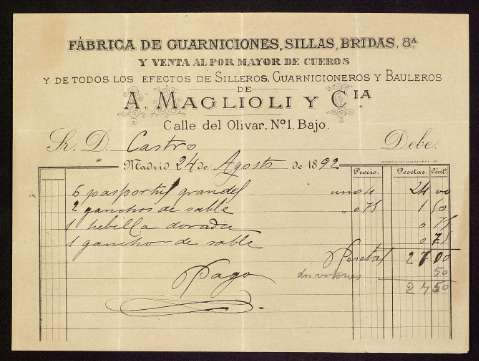 FÁBRICA DE GUARNICIONES, SILLAS, BRIDAS, &ª
Y VENTA AL POR MAYOR DE CUEROS
Y DE TODOS LOS EFECTOS DE SILLEROS, GUARNICIONEROS Y BAULEROS
DE
A. MAGLIOLI Y CIA
Calle del Olivar, Nº 1, Bajo.
Sr. D. Castro Debe.
Madrid 24 de Agosto de 1892 Precio. Pesetas Cent.
6 grandes 24 00
2 ganchos de sable 0 75 1 50
1 hebilla dorada 0 75
1 gancho de sable 0 75
Pesetas 27 00
Pago 50
50